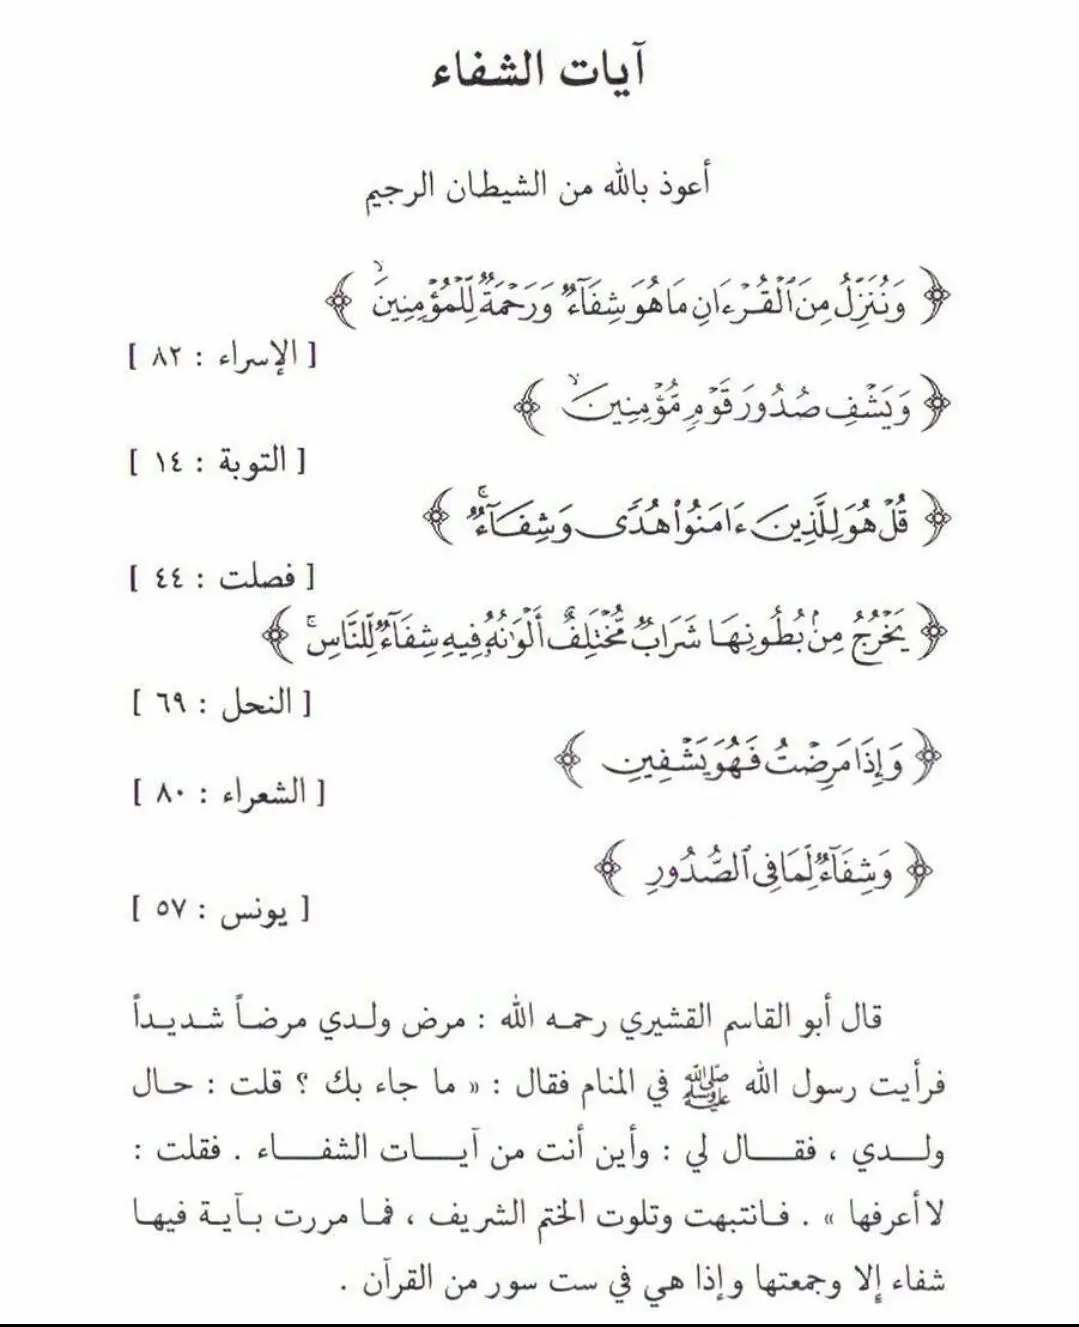 آيات الشفاء
أعوذ بالله من الشيطان الرجيم
﴿ وَنُنَزِّلُ مِنَ ٱلْقُرْءَانِ مَا هُوَ شِفَآءٌ وَرَحْمَةٌ لِّلْمُؤْمِنِينَۙ ﴾
[ الإسراء : ٨٢ ]
﴿ وَيَشْفِ صُدُورَ قَوْمٍ مُّؤْمِنِينَۙ ﴾
[ التوبة : ١٤ ]
﴿ قُلْ هُوَ لِلَّذِينَ ءَامَنُوا۟ هُدًى وَشِفَآءٌۚ ﴾
[ فصلت : ٤٤ ]
﴿ يَخْرُجُ مِنۢ بُطُونِهَا شَرَابٌ مُّخْتَلِفٌ أَلْوَٰنُهُۥ فِيهِ شِفَآءٌ لِّلنَّاسِۚ ﴾
[ النحل : ٦٩ ]
﴿ وَإِذَا مَرِضْتُ فَهُوَ يَشْفِينِ ﴾
[ الشعراء : ٨٠ ]
﴿ وَشِفَآءٌ لِّمَا فِى ٱلصُّدُورِ ﴾
[ يونس : ٥٧ ]
قال أبو القاسم القشيري رحمه الله : مرض ولدي مرضاً شديداً
فرأيت رسول الله ﷺ في المنام فقال : « ما جاء بك ؟ قلت : حال
ولدي ، فقال لي : وأين أنت من آيات الشفاء . فقلت :
لا أعرفها » . فانتبهت وتلوت الختم الشريف ، فما مررت بآية فيها
شفاء إلا وجمعتها وإذا هي في ست سور من القرآن .